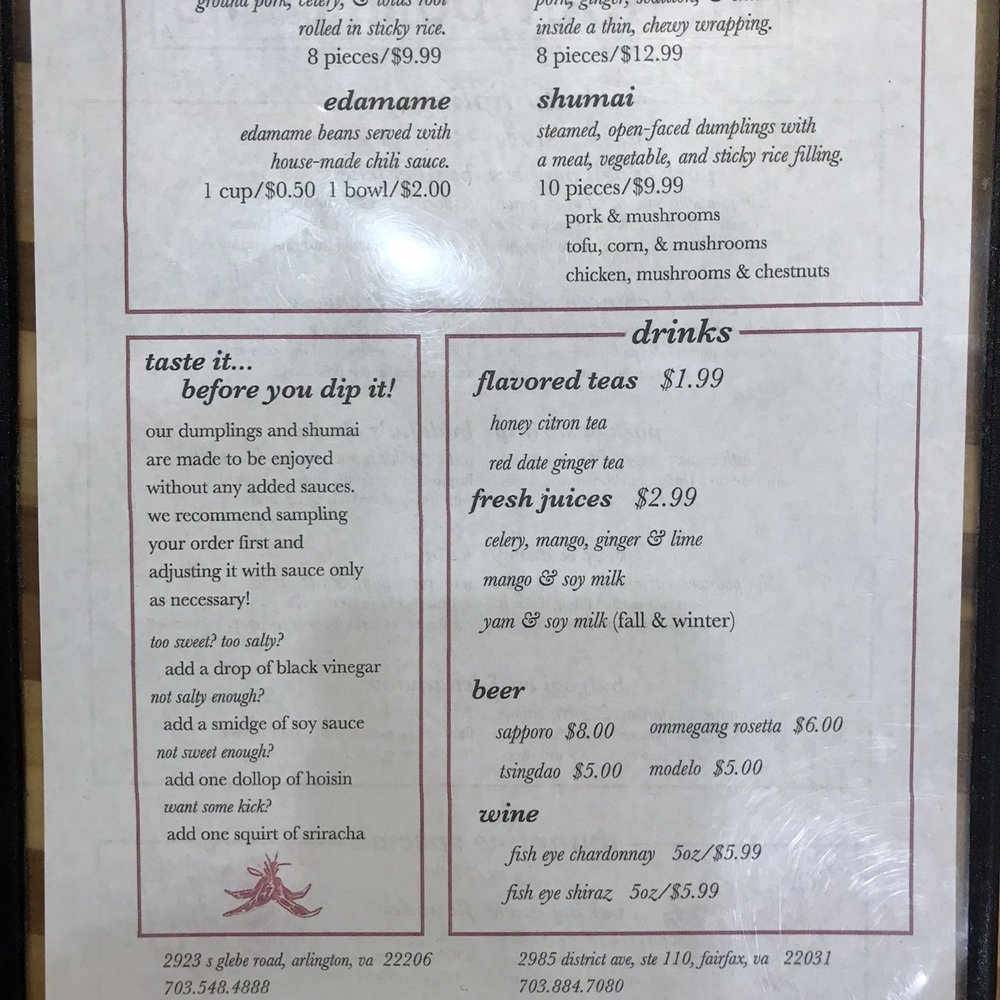 ground pork, celery, & lotus root
rolled in sticky rice.
8 pieces/$9.99
inside a thin, chewy wrapping.
8 pieces/$12.99
edamame
edamame beans served with
house-made chili sauce.
1 cup/$0.50 1 bowl/$2.00
shumai
steamed, open-faced dumplings with
a meat, vegetable, and sticky rice filling.
10 pieces/$9.99
pork & mushrooms
tofu, corn, & mushrooms
chicken, mushrooms & chestnuts
taste it...
before you dip it!
our dumplings and shumai
are made to be enjoyed
without any added sauces.
we recommend sampling
your order first and
adjusting it with sauce only
as necessary!
too sweet? too salty?
add a drop of black vinegar
not salty enough?
add a smidge of soy sauce
not sweet enough?
add one dollop of hoisin
want some kick?
add one squirt of sriracha
drinks
flavored teas $1.99
honey citron tea
red date ginger tea
fresh juices $2.99
celery, mango, ginger & lime
mango & soy milk
yam & soy milk (fall & winter)
beer
sapporo $8.00 ommegang rosetta $6.00
tsingdao $5.00 modelo $5.00
wine
fish eye chardonnay 5oz/$5.99
fish eye shiraz 5oz/$5.99
2923 s glebe road, arlington, va 22206
703.548.4888
2985 district ave, ste 110, fairfax, va 22031
703.884.7080